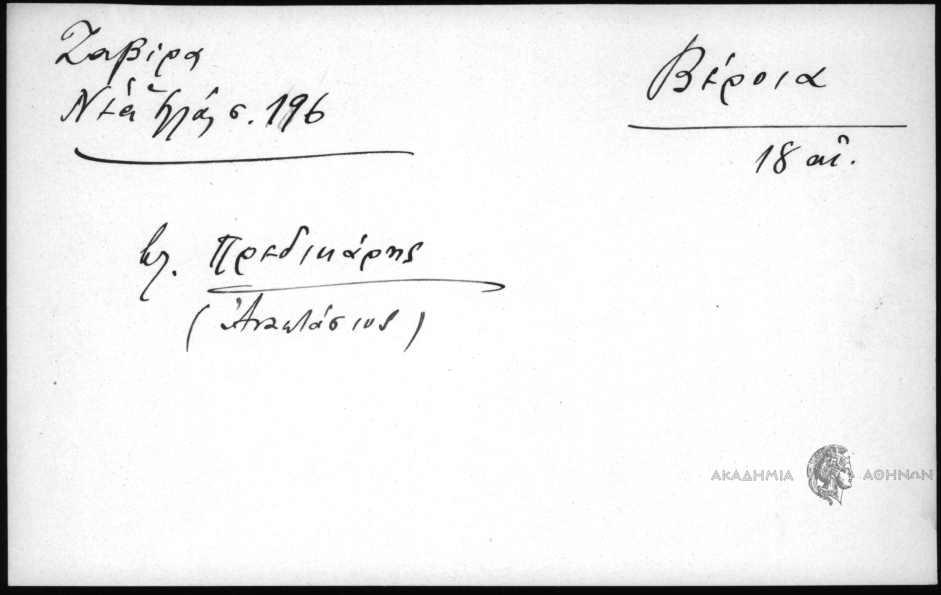 Ζαβίρα
Νέα Ἑλλάς σ. 196
Βέροια
18 αἰ.
ἐπ. Πρεδικάρης
(Ἀναστάσιος)
ΑΚΑΔΗΜΙΑ ΑΘΗΝΩΝ